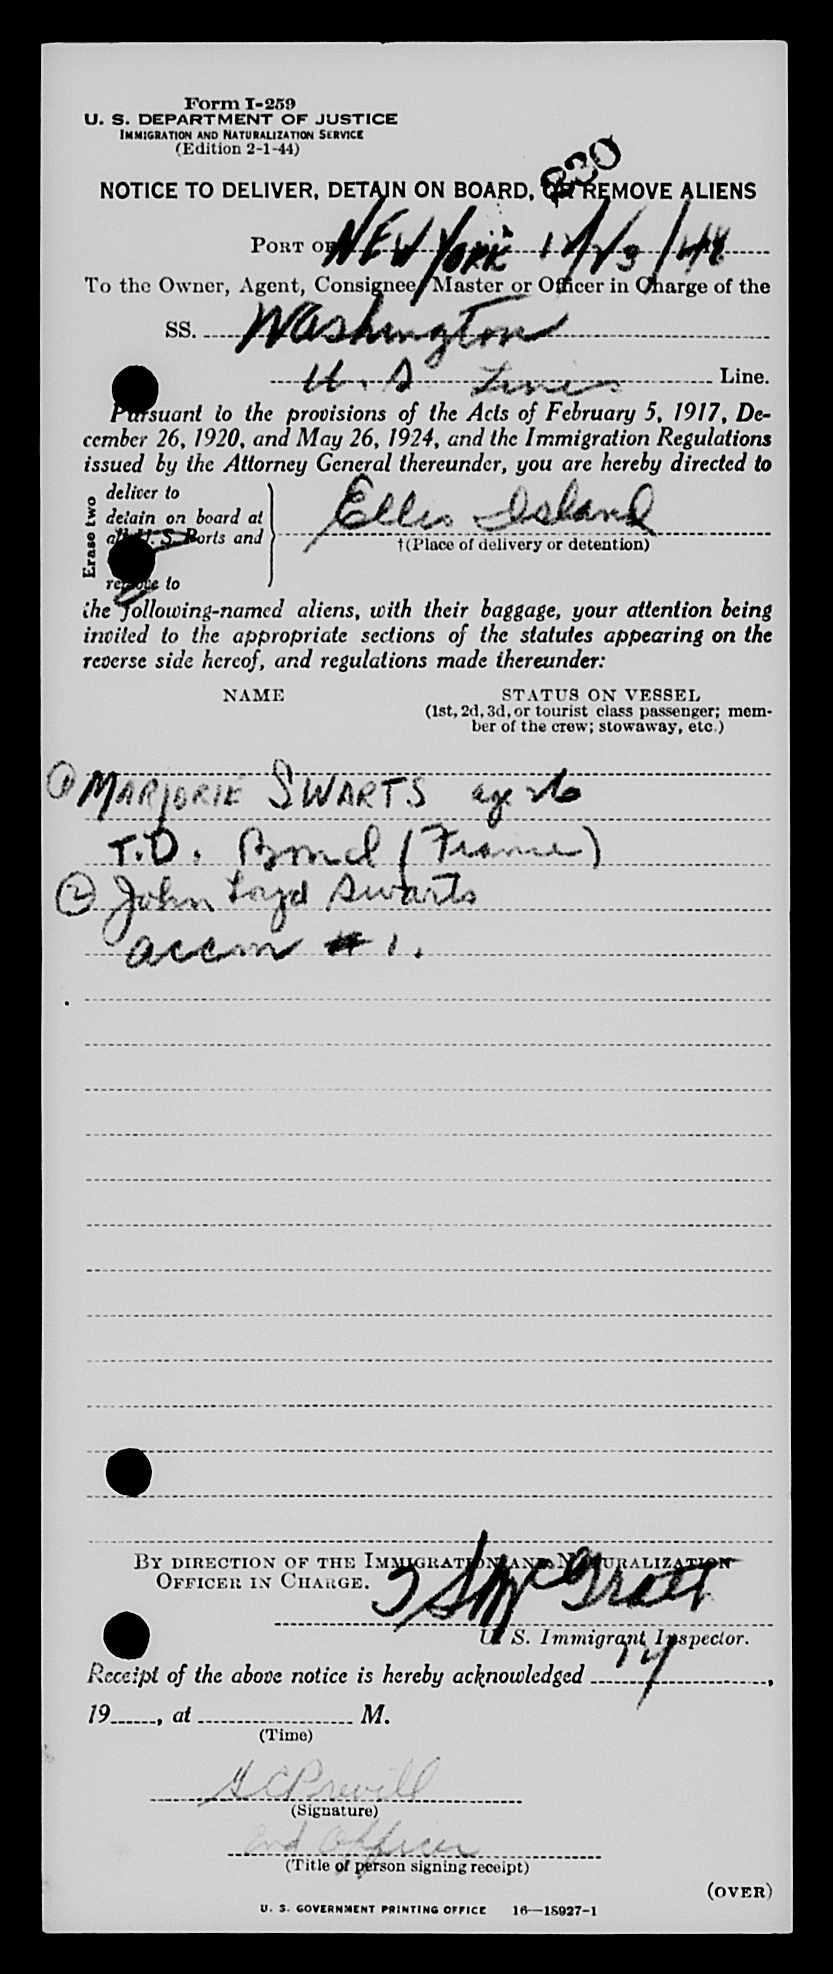 Form I-259
U. S. DEPARTMENT OF JUSTICE
IMMIGRATION AND NATURALIZATION SERVICE
(Edition 2-1-44)
NOTICE TO DELIVER, DETAIN ON BOARD, OR REMOVE ALIENS
PORT OF NEW YORK
To the Owner, Agent, Consignee, Master or Officer in Charge of the
SS. Washington
U. S. Lines Line.
Pursuant to the provisions of the Acts of February 5, 1917, De-
cember 26, 1920, and May 26, 1924, and the Immigration Regulations
issued by the Attorney General thereunder, you are hereby directed to
Erase two
deliver to
detain on board at
all U. S. Ports and
remove to
Ellis Island
†(Place of delivery or detention)
the following-named aliens, with their baggage, your attention being
invited to the appropriate sections of the statutes appearing on the
reverse side hereof, and regulations made thereunder:
NAME STATUS ON VESSEL
(1st, 2d, 3d, or tourist class passenger; mem-
ber of the crew; stowaway, etc.)
① MARJORIE SWARTS age 26
T.D. Bond (France)
② John Loyd Swarts
accm # 1.
BY DIRECTION OF THE IMMIGRATION AND NATURALIZATION
OFFICER IN CHARGE.
McGrath
U. S. Immigrant Inspector.
Receipt of the above notice is hereby acknowledged
19 , at M.
(Time)
(Signature)
2nd Officer
(Title of person signing receipt)
(OVER)
U. S. GOVERNMENT PRINTING OFFICE 16—18927-1